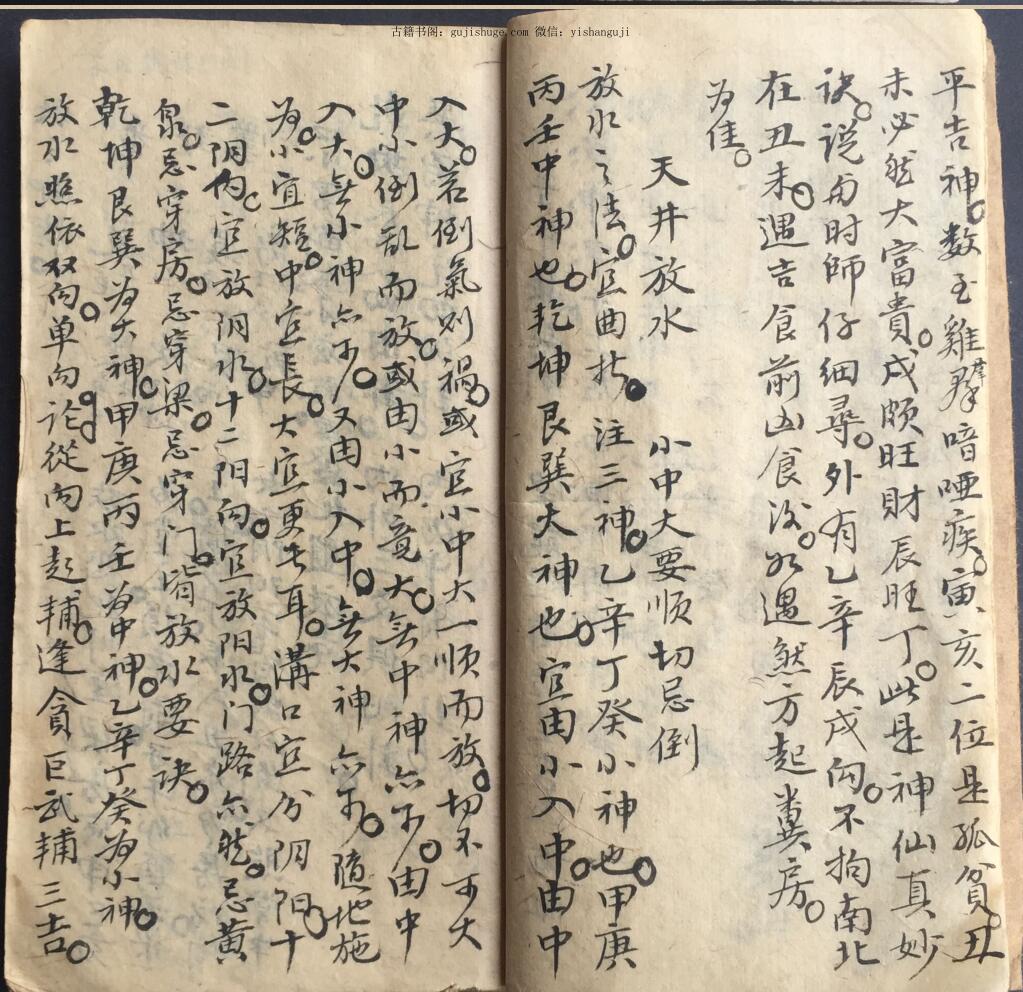 古籍书阁：gujishuge.com 微信：yishanguji
平吉神。数至雞群喑哑疾。寅、亥二位是孤貧。丑
未必然大富貴。戌颇旺財辰旺丁。此是神仙真妙
诀。说与时師仔细尋。外有乙辛辰戌向。不拘南北
在丑未。遇吉食前凶食後。如遇煞方起糞房。
为佳。
天井放水 小中大要顺切忌倒
放水之法。宜曲折。注三神。乙辛丁癸小神也。甲庚
丙壬中神也。乾坤艮巽大神也。宜由小入中。由中
入大。若倒氣则禍。或宜小中大一顺而放。切不可大
中小倒乱而放。或由小而竟大。無中神亦可。由中
入大。無小神亦可。又由小入中。無大神亦可。隨地施
为。小宜短。中宜長。大宜更長耳。溝口宜分阴阳。十
二阴向。宜放阴水。十二阳向。宜放阳水。门路亦然。忌黄
泉。忌穿房。忌穿梁。忌穿门。皆放水要诀。
乾坤艮巽为大神。甲庚丙壬为中神。乙辛丁癸为小神。
放水照依双向。单向。论從向上起輔。逢貪巨武輔三吉。